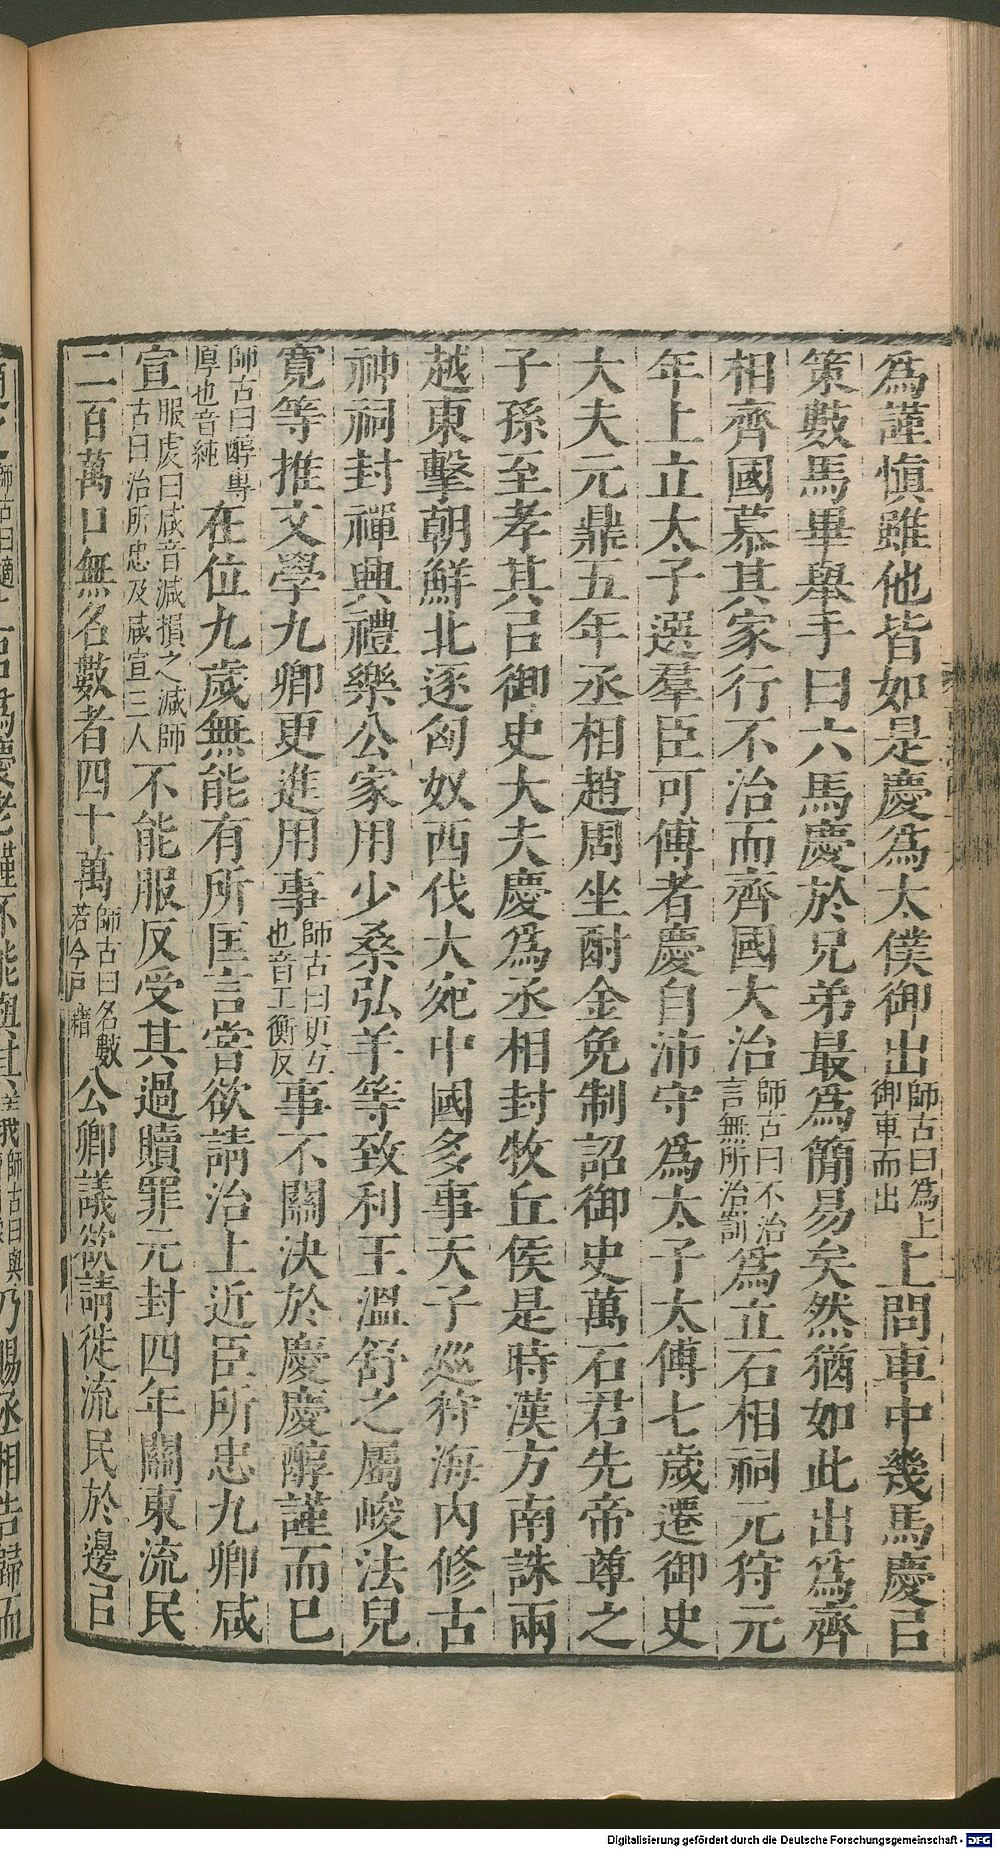 爲謹愼雖他皆如是慶爲太僕御出師古曰爲上御車而出上問車中幾馬慶㠯
策數馬畢舉手曰六馬慶於兄弟最爲簡易矣然猶如此出爲齊
相齊國慕其家行不治而齊國大治師古曰不治言無所治罰爲立石相祠元狩元
年上立太子選羣臣可傅者慶自沛守爲太子太傅七歲遷御史
大夫元鼎五年丞相趙周坐酎金免制詔御史萬石君先帝尊之
子孫至孝其㠯御史大夫慶爲丞相封牧丘侯是時漢方南誅兩
越東擊朝鮮北逐匈奴西伐大宛中國多事天子巡狩海内修古
神祠封禪興禮樂公家用少桑弘羊等致利王溫舒之屬峻法兒
寛等推文學九卿更進用事師古曰更互也音工衡反事不關決於慶慶醇謹而已
師古曰醇專厚也音純在位九歲無能有所匡言嘗欲請治上近臣所忠九卿咸
宣服虔曰咸音減損之減師古曰治所忠及咸宣三人不能服反受其過贖罪元封四年關東流民
二百萬口無名數者四十萬師古曰名數若今戶籍公卿議欲請徙流民於邊㠯
乃賜丞相告歸而
Digitalisierung gefördert durch die Deutsche Forschungsgemeinschaft - DFG